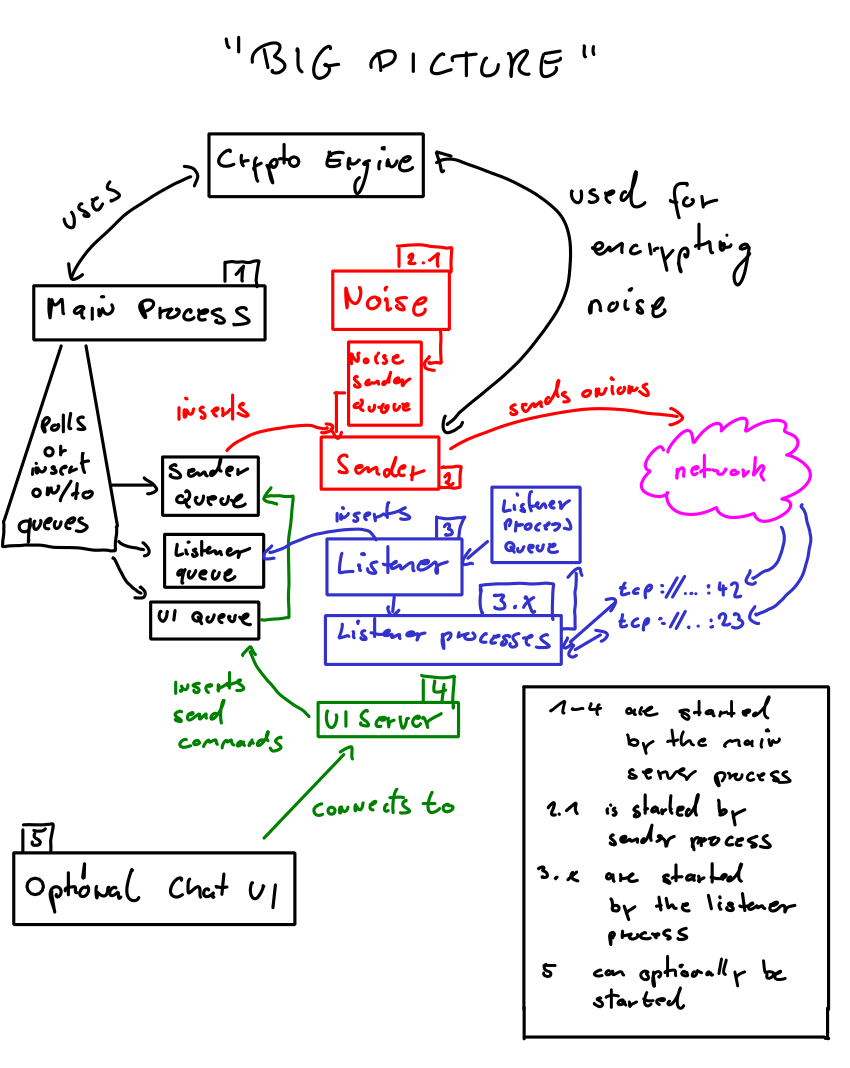 "BIG PICTURE"
Crypto Engine
uses
used for
encrypting
noise
1
Main Process
2.1
Noise
Noise
Sender
Queue
inserts
sends onions
Polls
or
insert
on/to
queues
Sender
Queue
Sender
2
network
inserts
3
Listener
Process
Queue
Listener
queue
Listener
UI Queue
3.x
Listener processes
tcp://...:42
tcp://..:23
inserts
send
commands
4
UI Server
connects to
5
Optional Chat UI
1-4 are started
by the main
server process
2.1 is started by
sender process
3.x are started
by the listener
process
5 can optionally be
started